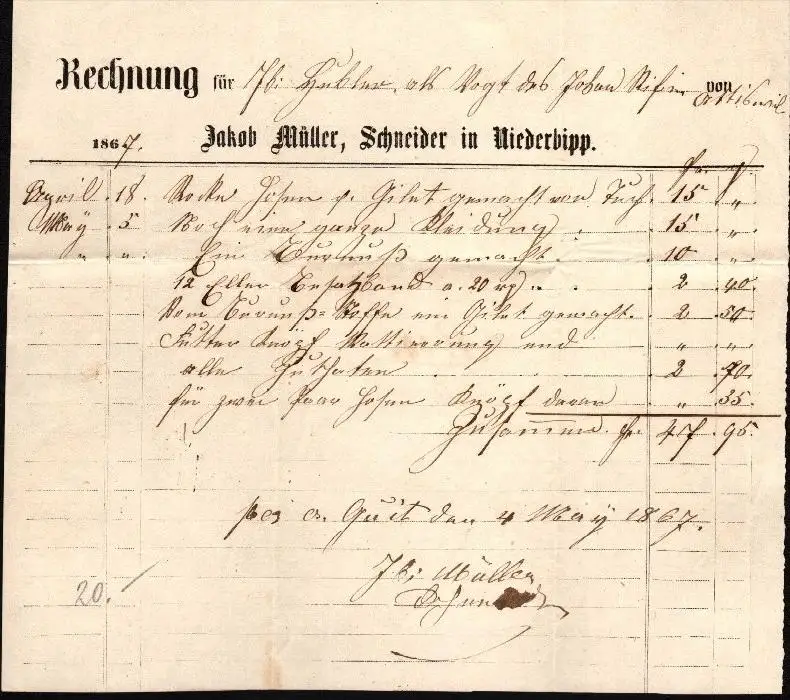 Rechnung für Jb: Hubler, als Vogt des Johan von Attiswil
1867. Jakob Müller, Schneider in Niederbipp.
Fr.
April 18. Rocke Hosen u. Gilet gemacht von Tuch. 15 "
May 5 Noch eine ganze Kleidung 15 "
" " Ein Burnuß gemacht 10 "
12 Ellen Besatzband a. 20 rp 2 40.
Vom Burnuß-Stoffe ein Gilet gemacht. 2 50.
Futter Knöpf Wattierung und " "
alle Zuthaten 2 70.
für zwei Paar Hosen Knöpf daran " 35.
Zusammen Fr. 47 95.
den 4 May 1867.
Jb: Müller
20.